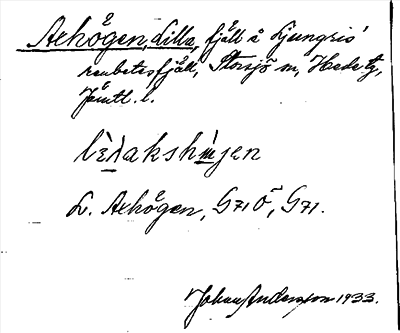 Axhögen, Lilla, fjäll å Ljungris'
renbetesfjäll, Storsjö sn, Hede tg,
Jämtl. l.
L. Axhögen, G71 Ö, G71.
Johan Andersson 1933.